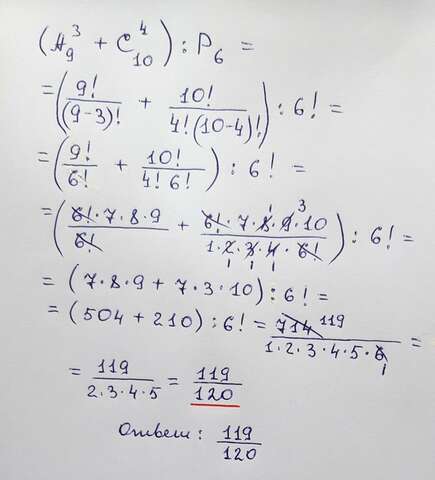 (A₉³ + C₁₀⁴) : P₆ =
= (9!/(9-3)! + 10!/4!(10-4)!) : 6! =
= (9!/6! + 10!/4! 6!) : 6! =
= (6!·7·8·9/6! + 6!·7·8·9·10/1·2·3·4·6!) : 6! =
= (7·8·9 + 7·3·10) : 6! =
= (504 + 210) : 6! = 714 119/1·2·3·4·5·6 =
= 119/2·3·4·5 = 119/120
Ответ: 119/120